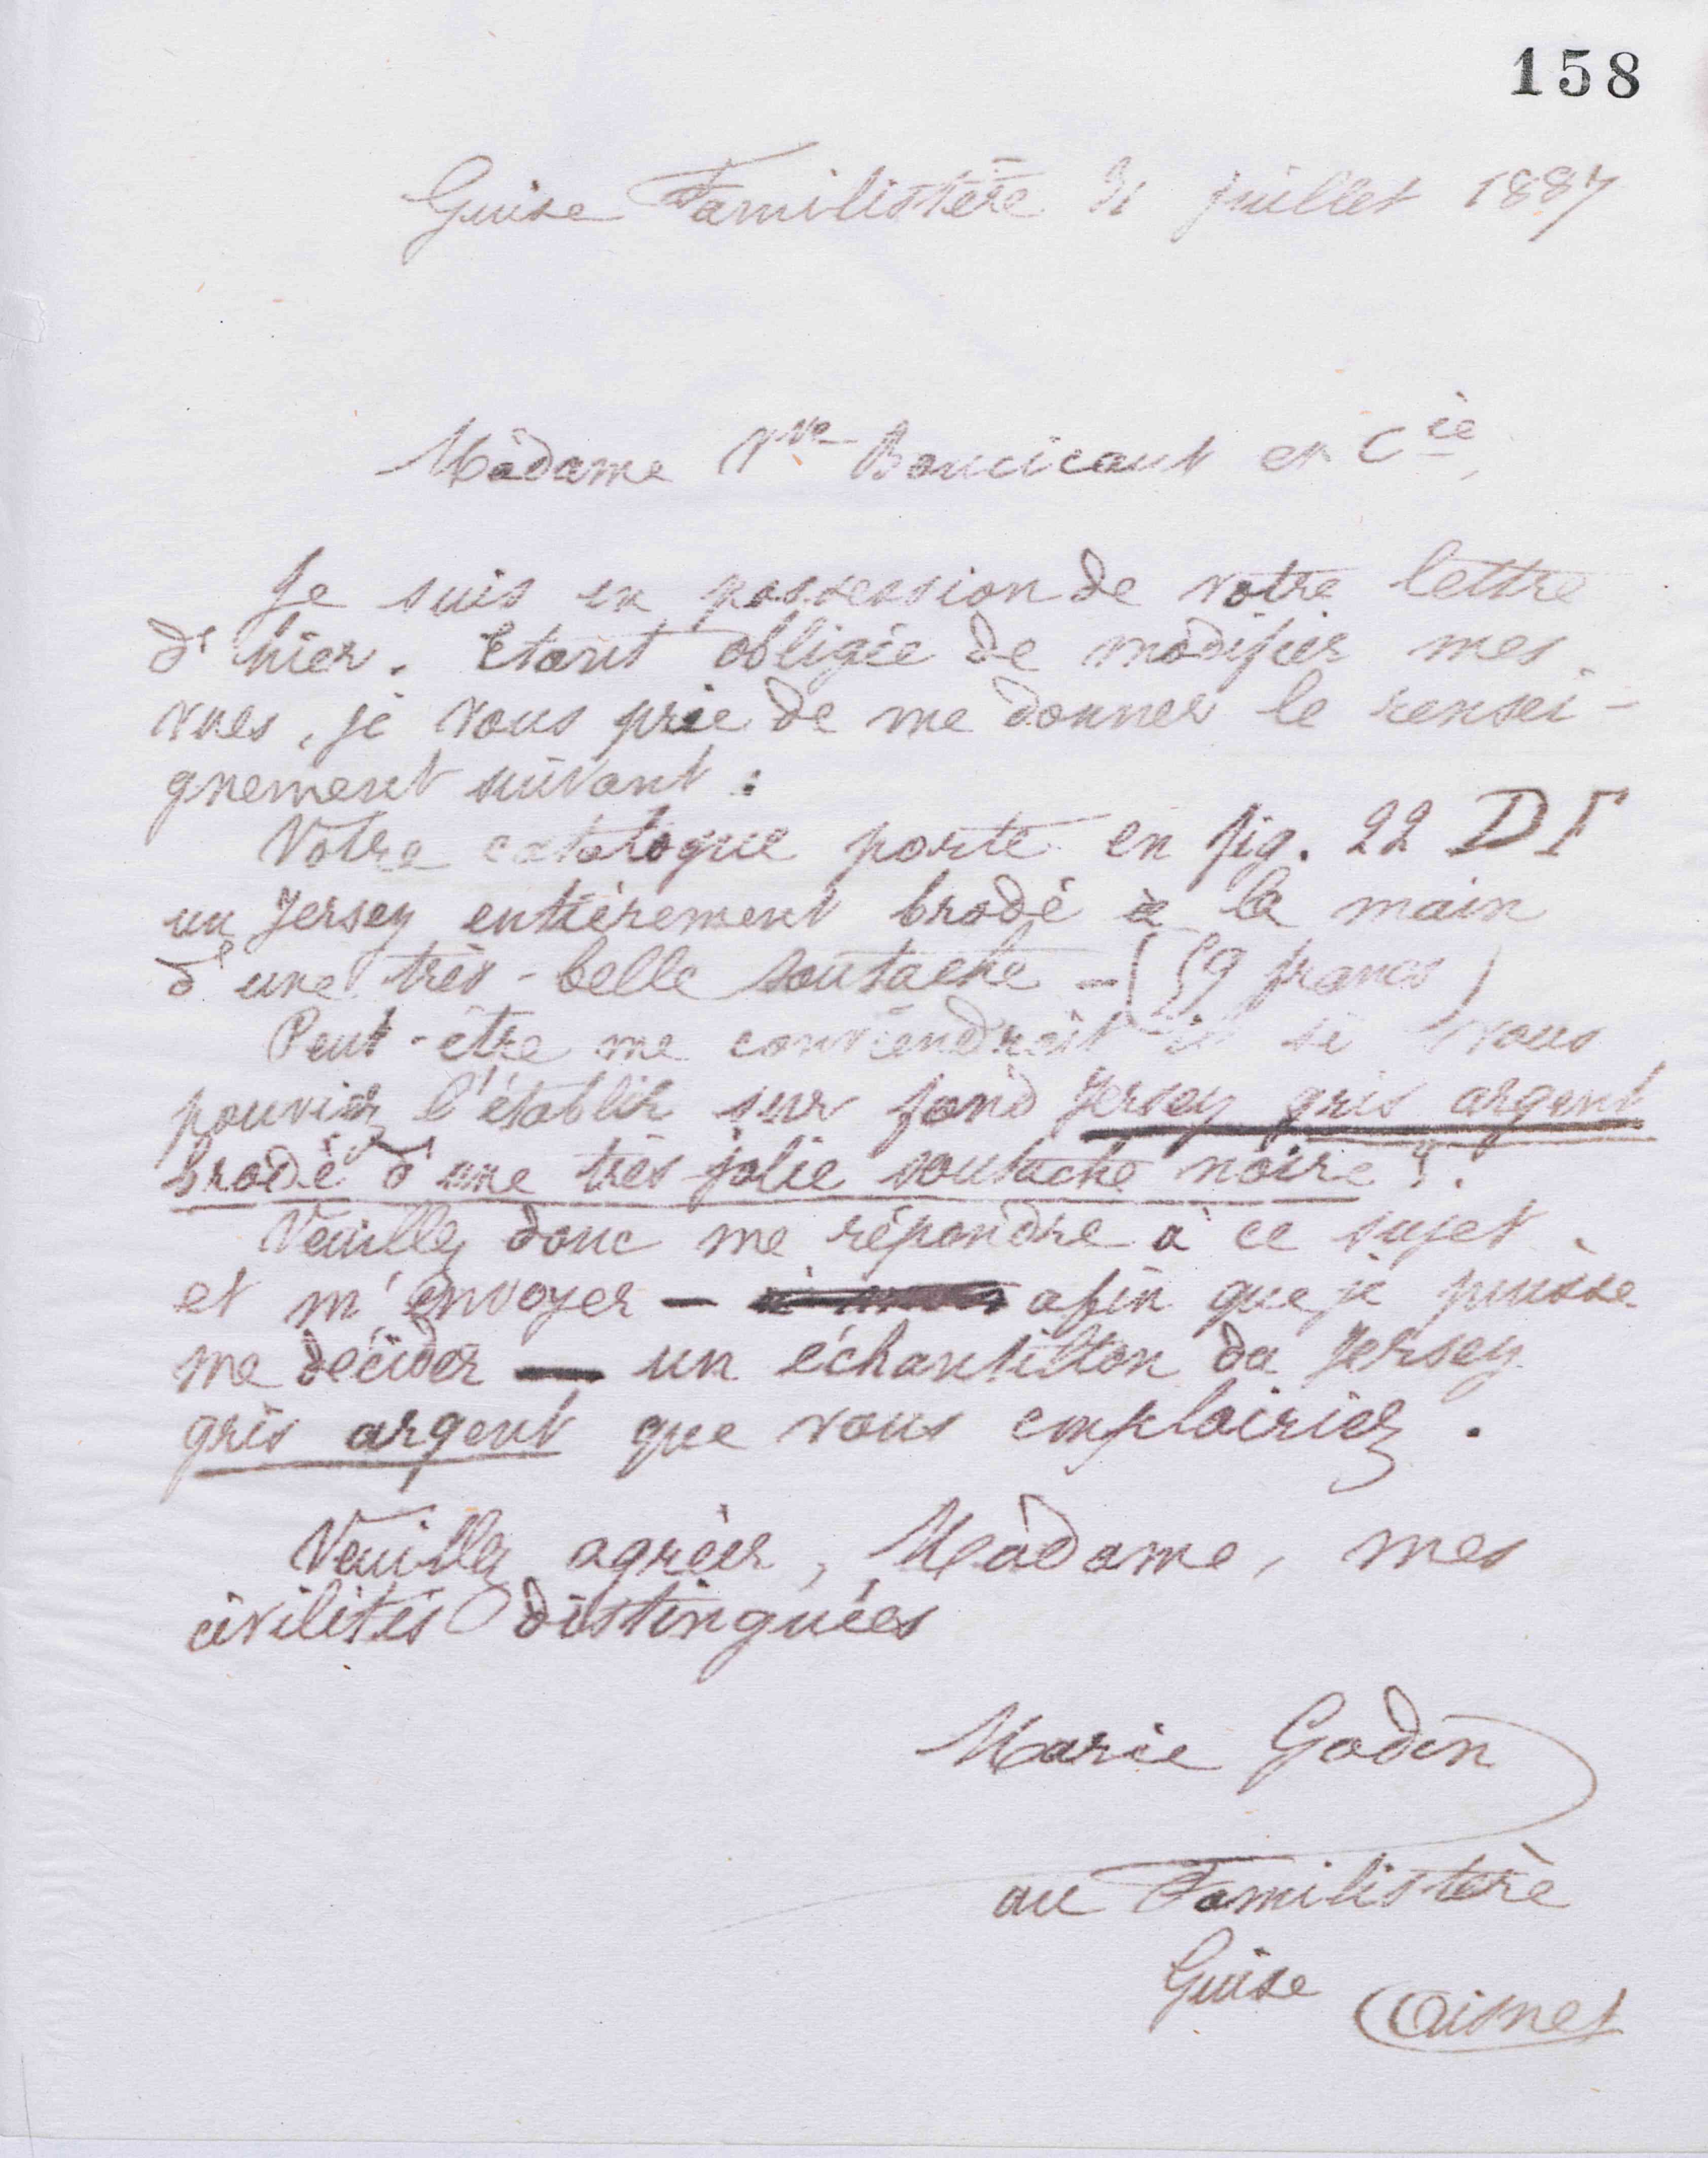 158
Guise Familistère 31 juillet 1887
Madame Vve Boucicaut et Cie,
Je suis en possession de votre lettre
d'hier. Etant obligée de modifier mes
vues, je vous prie de me donner le rensei-
gnement suivant :
Votre catalogue porte en fig. 22
un Jersey entièrement brodé à la main
d'une très-belle soutache - (59 francs)
Peut-être me conviendrait-il si vous
pouviez l'établir sur fond Jersey gris argent
brodé d'une très jolie soutache noire ?.
Veuillez donc me répondre à ce sujet
et m'envoyer — afin que je puisse
me décider — un échantillon du Jersey
gris argent que vous emploiriez.
Veuillez agréer, Madame, mes
civilités distinguées
Marie Godin
au Familistère
Guise (Aisne)